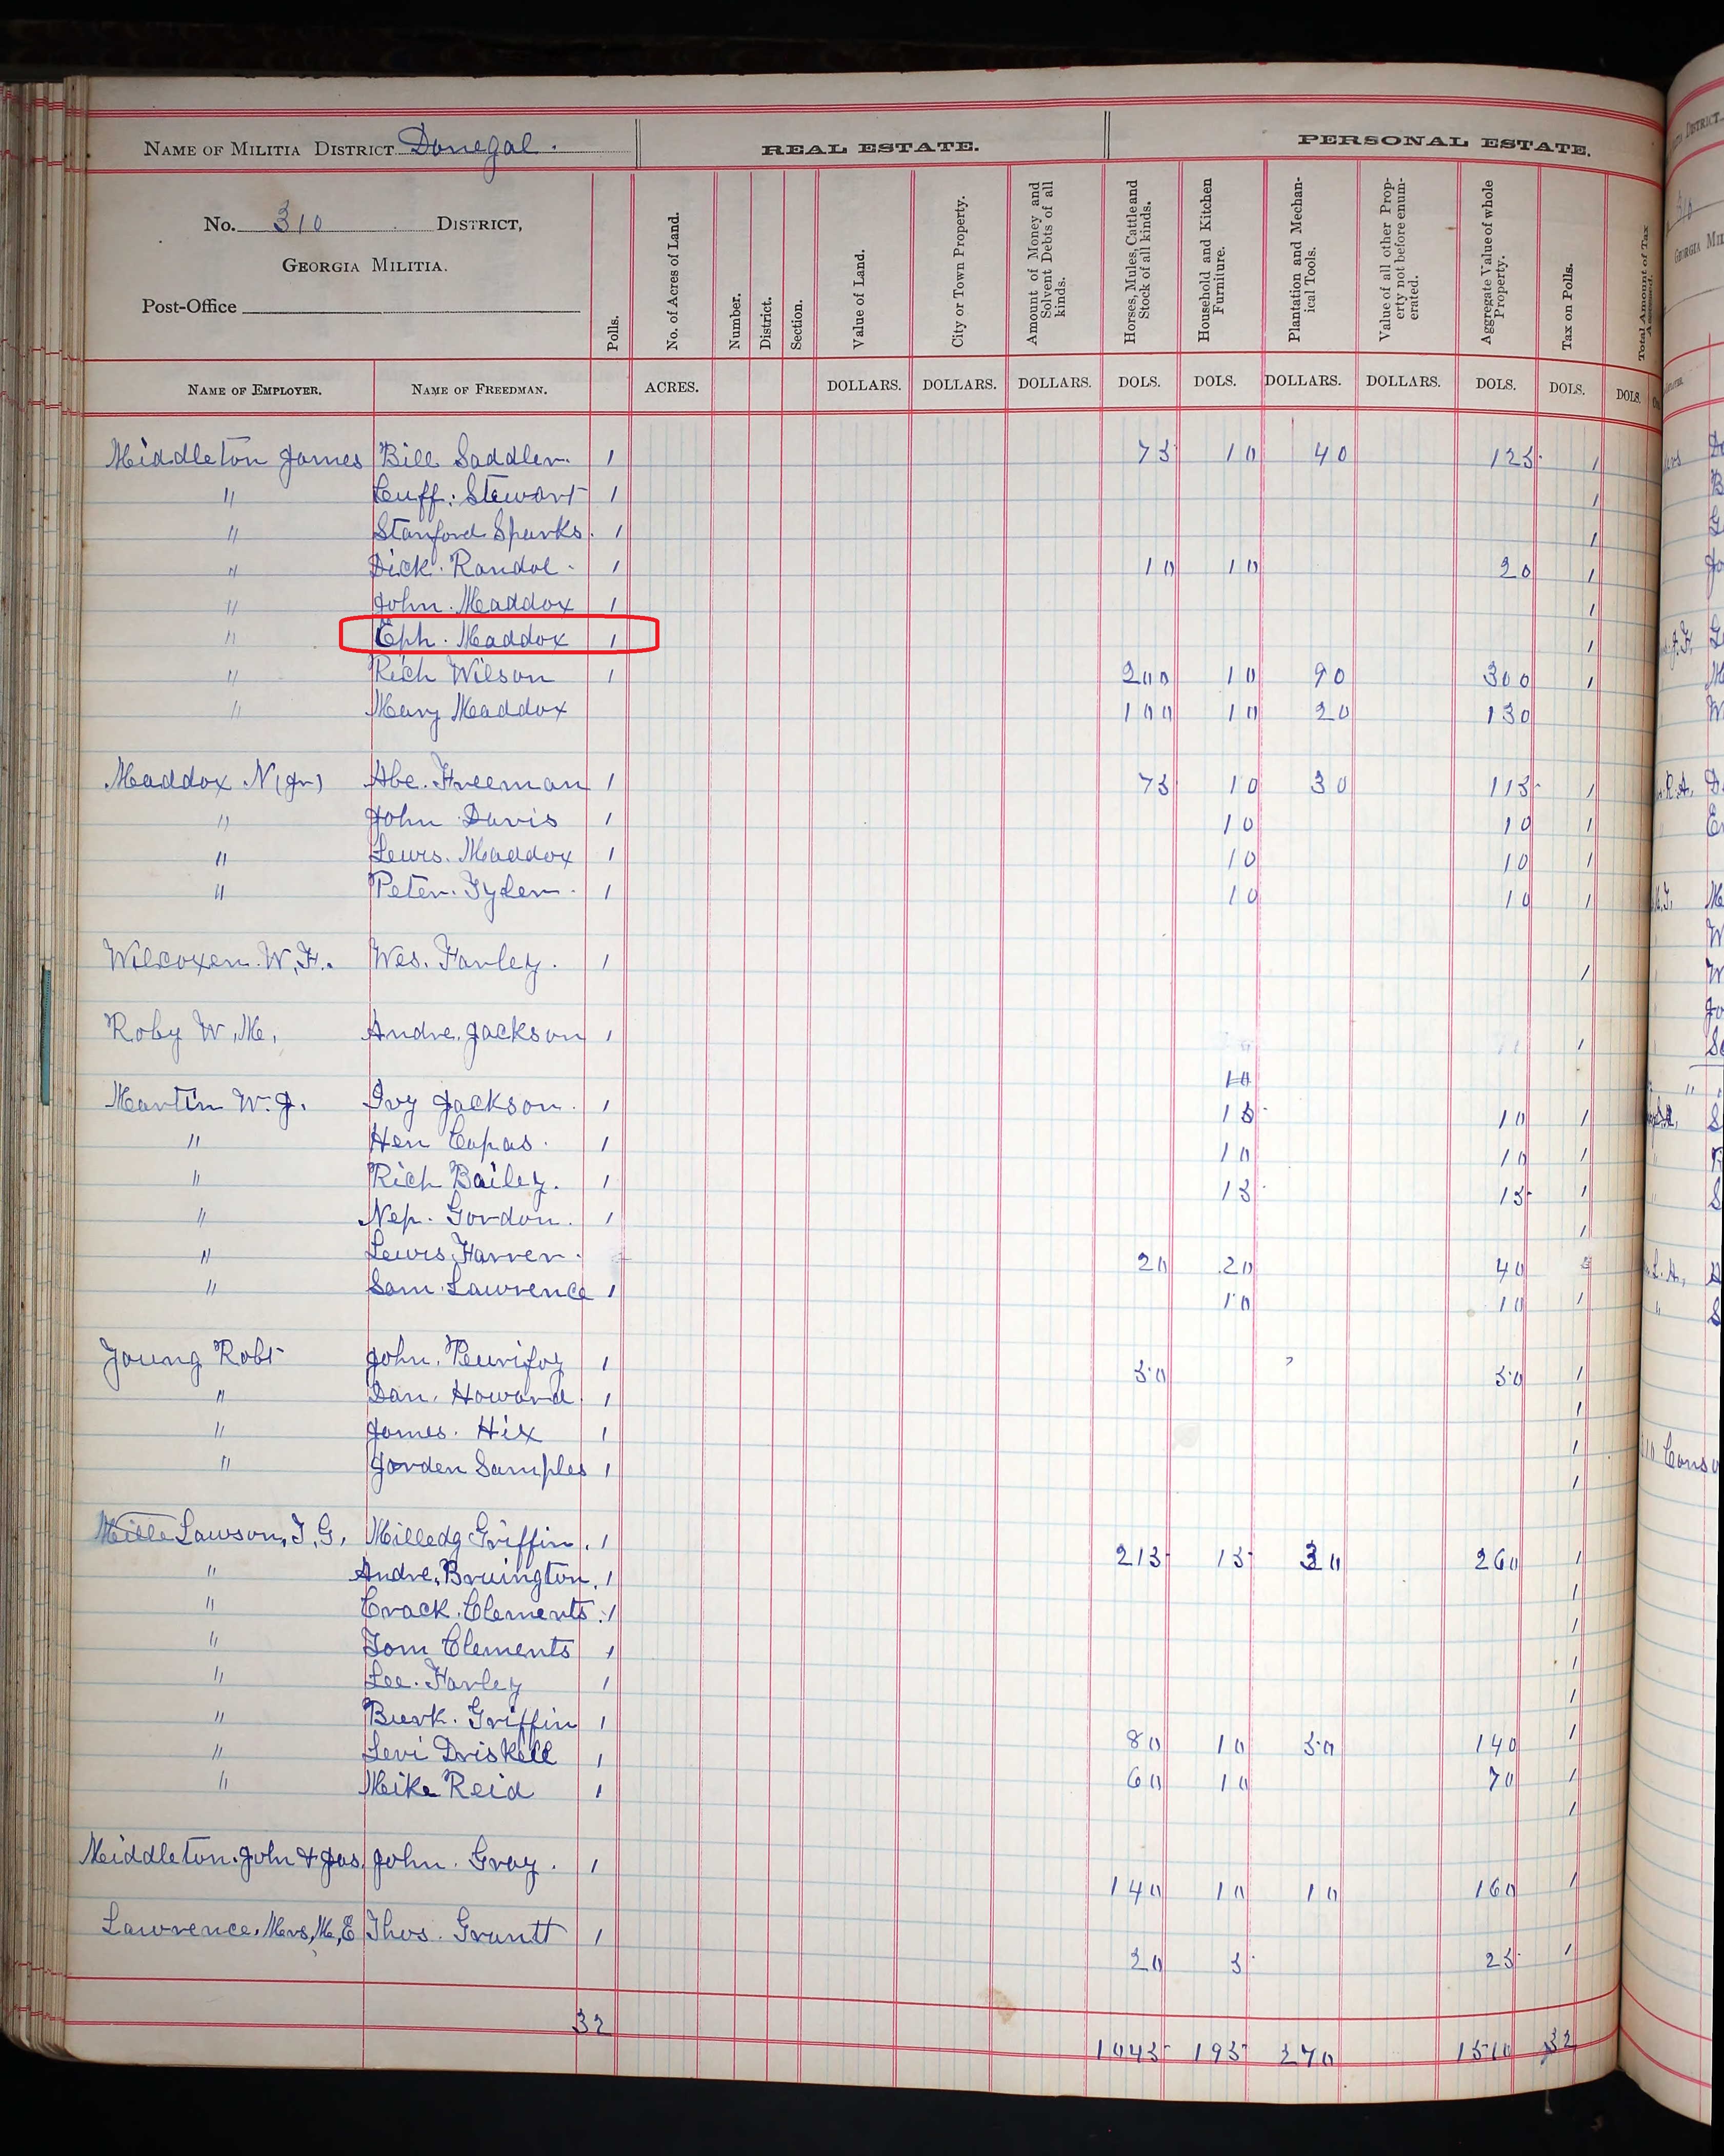 NAME OF MILITIA DISTRICT Donegal. REAL ESTATE. PERSONAL ESTATE.
No. 310 DISTRICT,
GEORGIA MILITIA.
Post-Office
Polls. No. of Acres of Land. Number. District. Section. Value of Land. City or Town Property. Amount of Money and Solvent Debts of all kinds. Horses, Mules, Cattle and Stock of all kinds. Household and Kitchen Furniture. Plantation and Mechanical Tools. Value of all other Property not before enumerated. Aggregate Value of whole Property. Tax on Polls. Total Amount of Tax Assessed.
NAME OF EMPLOYER. NAME OF FREEDMAN. ACRES. DOLLARS. DOLLARS. DOLLARS. DOLS. DOLS. DOLLARS. DOLLARS. DOLS. DOLS. DOLS.
Middleton James Bill Saddler. 1 75 10 40 125 1
" Cuff. Stewart 1 1
" Stanford Sparks. 1 1
" Dick. Randol. 1 10 10 20 1
" John. Maddox 1 1
" Eph. Maddox 1 1
" Rich Wilson 1 200 10 90 300 1
" Mary Maddox 100 10 20 130
Maddox N (Jr) Abe. Freeman 1 75 10 30 115 1
" John Davis 1 10 10 1
" Lewis. Maddox 1 10 10 1
" Peter. Tyler. 1 10 10 1
Wilcoxen. W. F. Wes. Farley. 1 1
Roby W. M. Andre. Jackson 1 1
10
Martin W. J. Ivy Jackson. 1 10 1
" Hen Capas. 1 10 10 1
" Rich Bailey. 1 15 15 1
" Nep. Gordon. 1 1
" Lewis. Farrer. 20 20 40
" Sam. Lawrence 1 10 10 1
Young Robt John. Peurifoy 1 50 50 1
" Dan. Howard. 1 1
" James. Hix 1 1
" Jorden Samples 1 1
Lawson, T. G. Milledg Griffin. 1 215 15 30 260 1
" Andre. Bruington. 1 1
" Crack. Clements. 1 1
" Tom Clements 1 1
" Lee. Farley 1 1
" Burk. Griffin 1 1
" Levi Driskell 1 80 10 50 140 1
" Mike Reid 1 60 10 70 1
Middleton. John & Jas. John. Gray. 1 140 10 10 160 1
Lawrence. Mrs, M, E Thos. Grantt 1 20 5 25 1
32 1045 195 270 1510 32